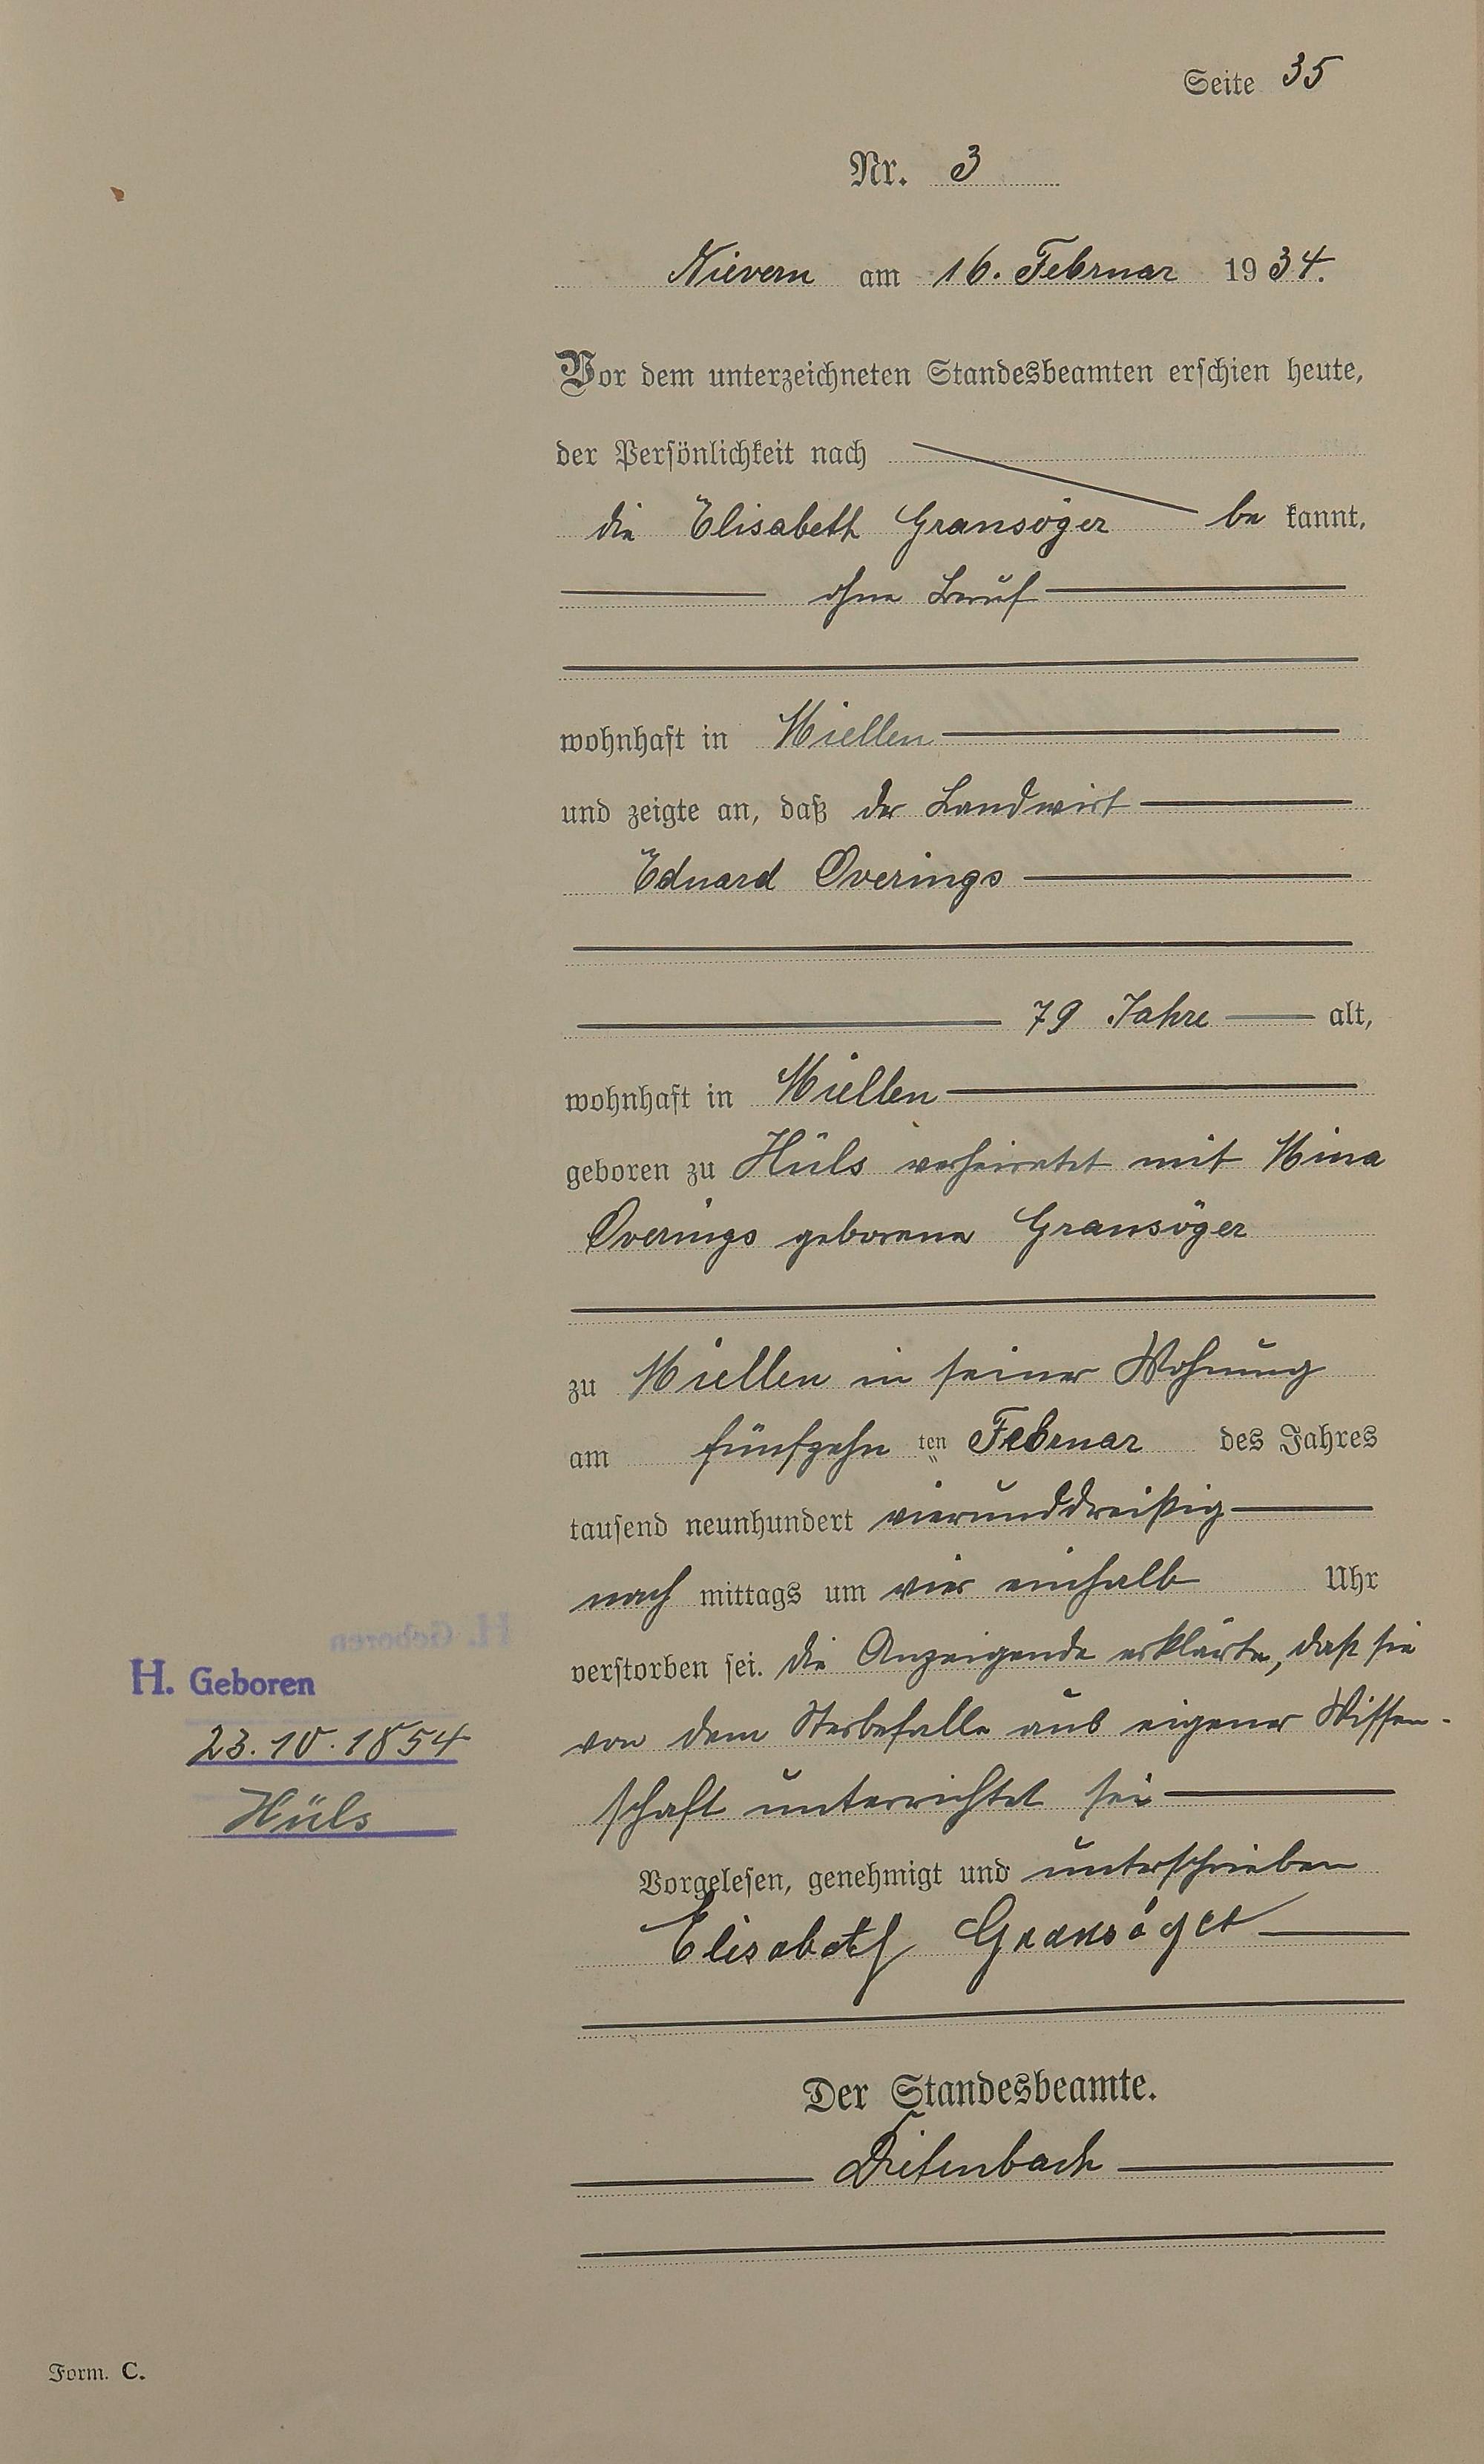 Seite 35
Nr. 3
Nievern am 16. Februar 1934.
Vor dem unterzeichneten Standesbeamten erschien heute,
der Persönlichkeit nach
die Elisabeth Gransöger be kannt,
ohne Beruf
wohnhaft in Miellen
und zeigte an, daß der Landwirt
Eduard Overings
79 Jahre alt,
wohnhaft in Miellen
geboren zu Hüls verheiratet mit Mina
Overings geborene Gransöger
zu Miellen in seiner Wohnung
am fünfzehn ten Februar des Jahres
tausend neunhundert vierunddreißig
nach mittags um vier einhalb Uhr
verstorben sei. Die Anzeigende erklärte, daß sie
von dem Sterbefalle aus eigener Wissen-
schaft unterrichtet sei
Vorgelesen, genehmigt und unterschrieben
Elisabeth Gransöger
Der Standesbeamte.
H. Geboren
23.10.1854
Hüls
Form. C.